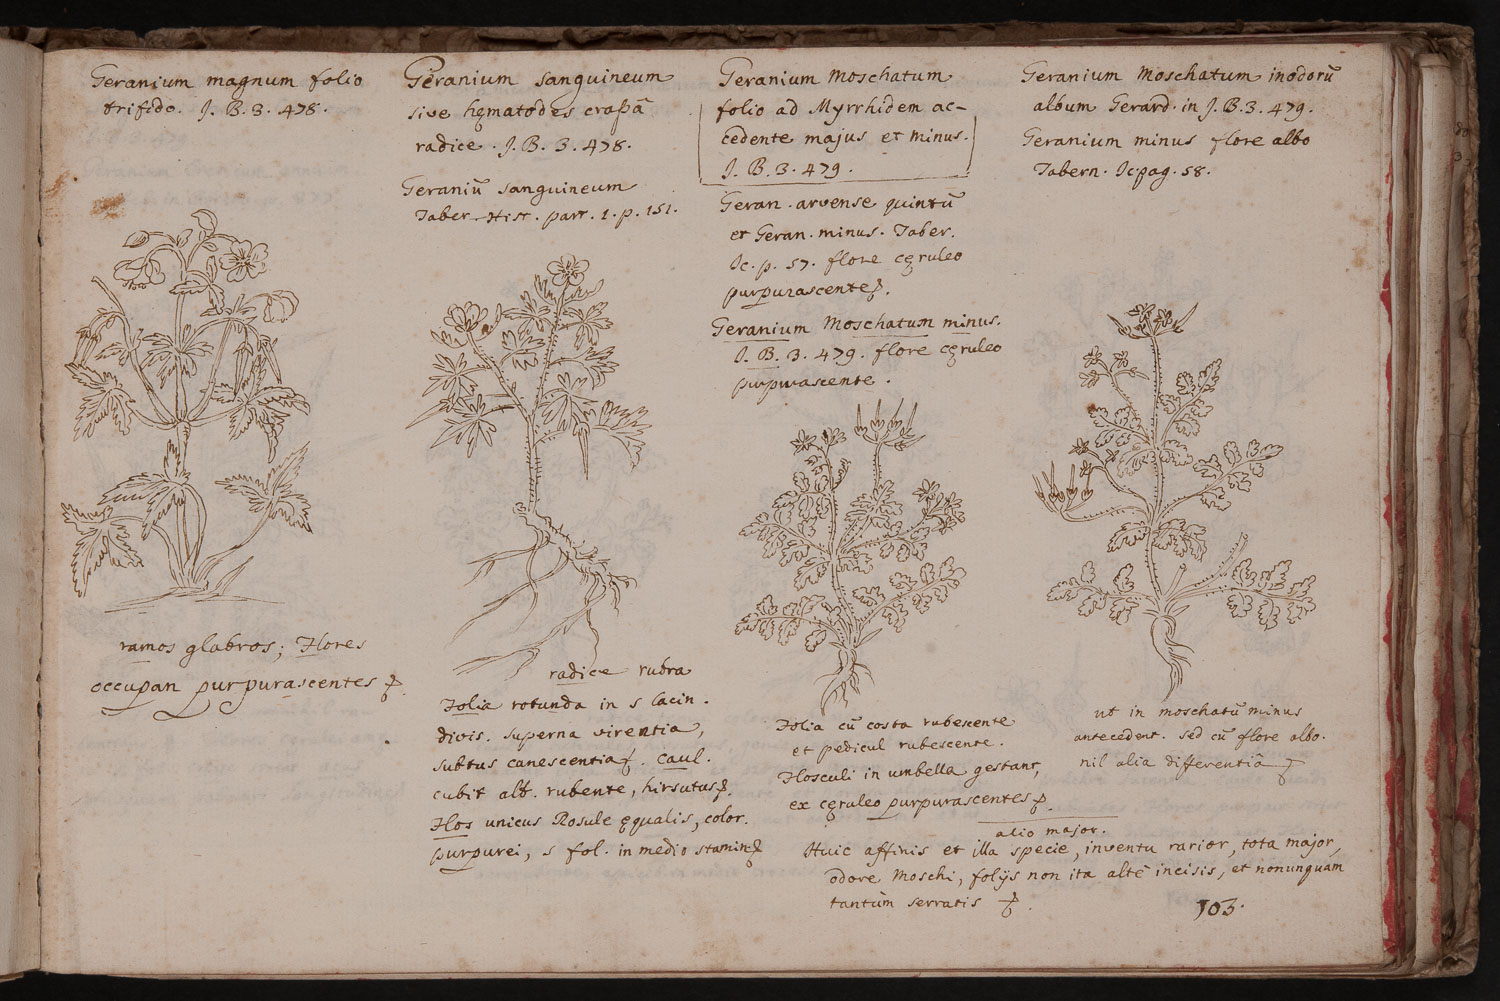 Geranium magnum folio
trifido. J. B. 3. 478.
Geranium sanguineum
sive hęmatodes crassã
radice. J. B. 3. 478.
Geraniũ sanguineum
Taber. Hist. part. 1. p. 151.
Geranium Moschatum
folio ad Myrrhidem ac-
cedente majus et minus.
J. B. 3. 479.
Geran. arvense quintũ
et Geran. minus. Taber.
Ic. p. 57. flore cęruleo
purpurascente.
Geranium Moschatum minus.
J. B. 3. 479. flore cęruleo
purpurascente.
Geranium Moschatum inodorũ
album Gerard. in J. B. 3. 479.
Geranium minus flore albo
Tabern. Ic. pag. 58.
ramos glabros; Flores
occupan purpurascentes
radice rubra
Folia rotunda in 5 lacin.
divis. superna virentia,
subtus canescentia. Caul.
cubit alt. rubente, hirsutus.
Flos unicus Rosule ęqualis, color.
purpurei, 5 fol. in medio stamin
Folia cũ costa rubescente
et pedicul rubescente.
Flosculi in umbella gestant,
ex cęruleo purpurascentes.
ut in moschatũ minus
antecedent. sed cũ flore albo.
nil alia differentiã
alio major.
Huic affinis et illa specie, inventu rarior, tota major,
odore Moschi, folijs non ita altè incisis, et nonunquàm
tantùm serratis
103.